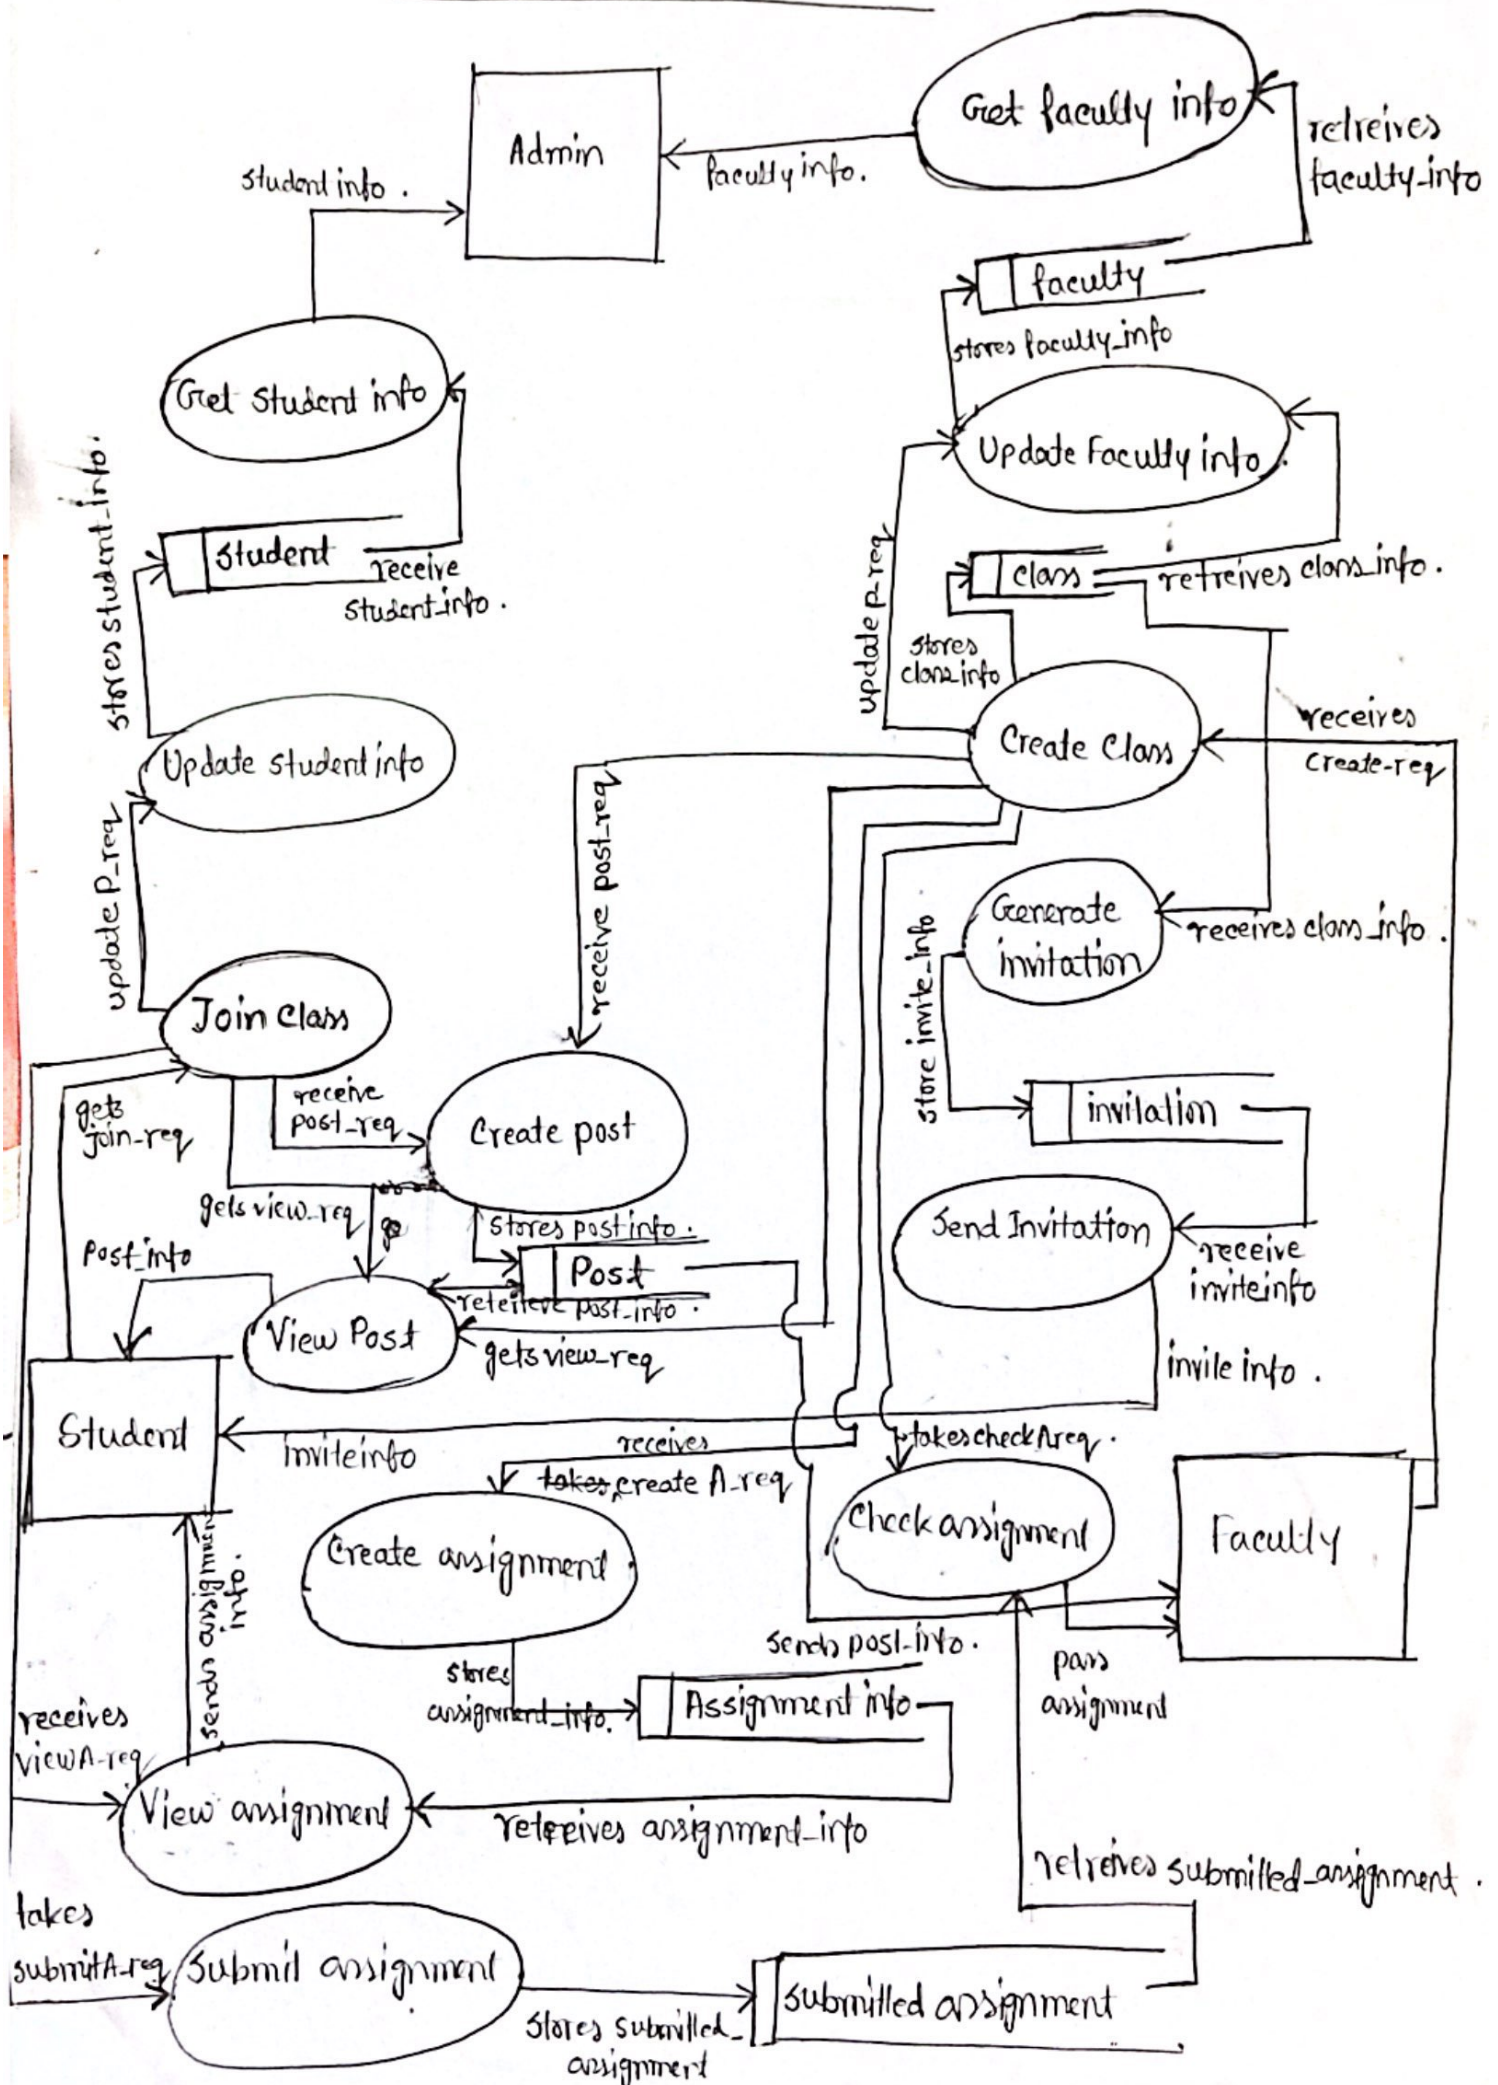 Get faculty info
Admin
retreives
faculty_info
student info.
faculty info.
faculty
stores faculty_info
Get Student info
Update Faculty info.
stores student_info.
student
receive
student_info.
class
retreives class_info.
update P_req
stores
class info
receives
Create-req
Create Class
Update student info
update P_req
receive post_req
Generate
invitation
receives class_info.
store invite_info
Join Class
gets
join_req
receive
post_req
Create post
invitation
gets view_req
go
stores post info.
Send Invitation
Post_info
Post
receive
invite info
post_info.
View Post
gets view_req
invite info.
Student
invite info
receives
takes create A_req
takes check A req.
Create assignment
Check assignment
Faculty
sends assignment
info.
sends post_info.
stores
assignment_info.
Assignment info
pass
assignment
receives
view A-req
View assignment
retreives assignment_info
retreives submitted_assignment.
takes
submit A-req
Submit assignment
submitted assignment
stores submitted_
assignment